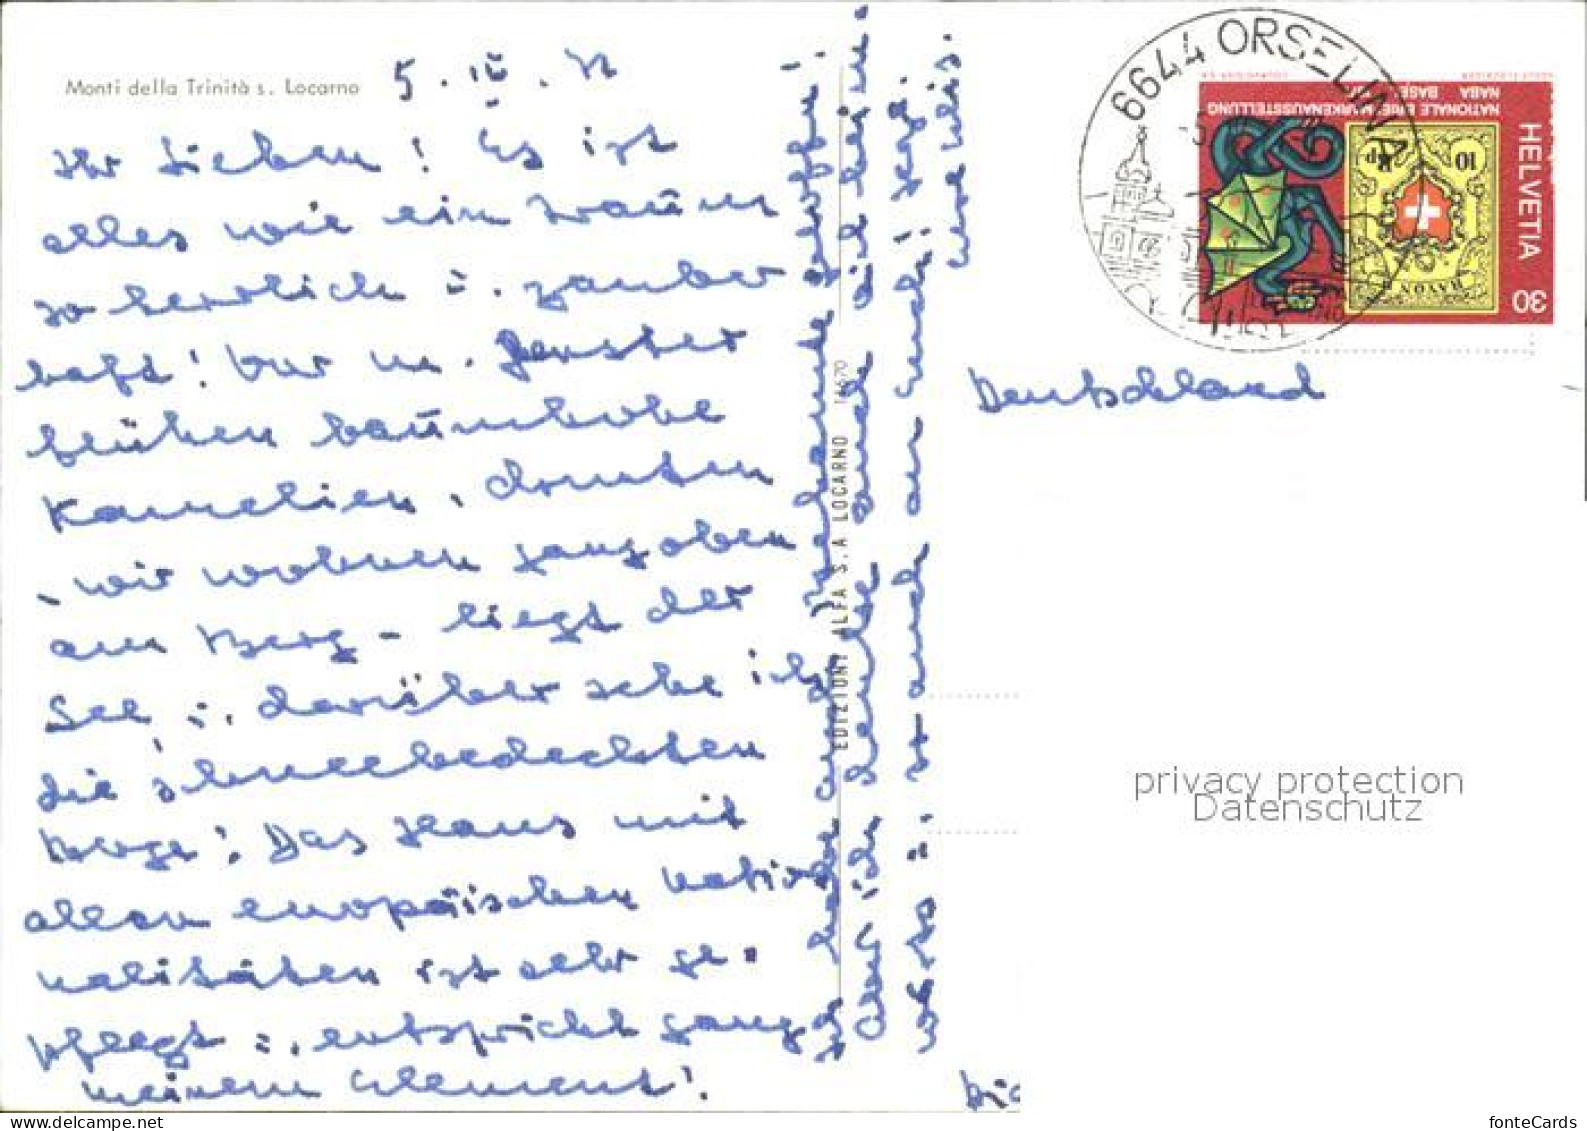 Monti della Trinità s. Locarno
5. IV. 71
Ihr Lieben! Es ist
alles wie ein Traum
so herrlich u. zauber
haft! Vor m. Fenster
blühen baumhohe
Kamelien, drunten
- wir wohnen ganz oben
am Berg - liegt der
See u. darüber sehe ich
die schneebedeckten
Berge! Das Haus mit
allen europäischen Natio
nalitäten ist sehr ge-
pflegt u. entspricht ganz
meinem Element!
Ich habe auch
aber ich
Deutschland
EDIZIONI ALFA S.A LOCARNO 14670
6644 ORSELINA
HELVETIA
30
NATIONALE BRIEFMARKENAUSSTELLUNG
NABA BASEL 1971
10 Rp.
RAYON
privacy protection
Datenschutz
fonteCards